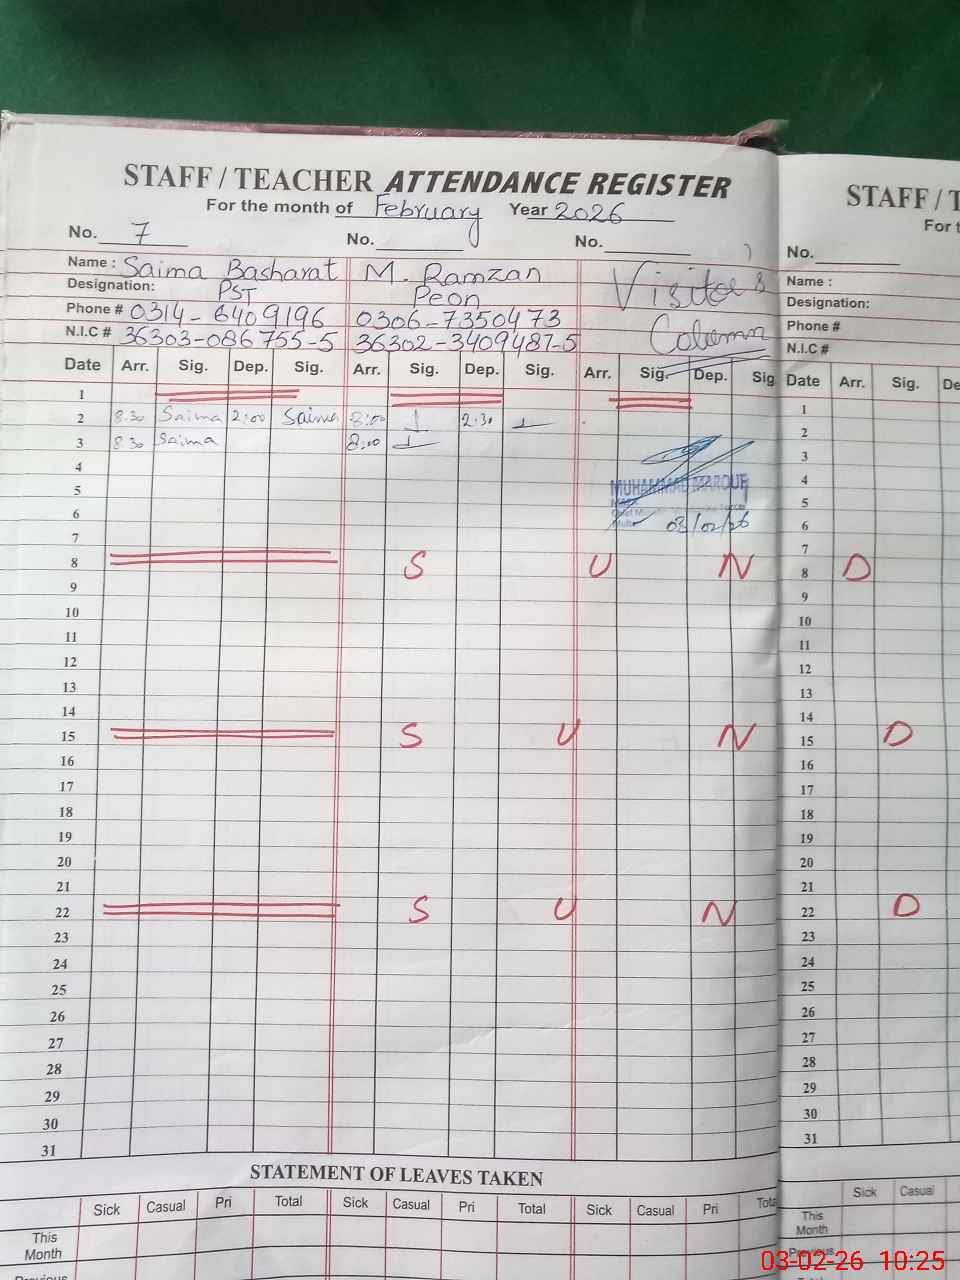 STAFF / TEACHER ATTENDANCE REGISTER
For the month of February Year 2026
No. 7 No. No.
Name : Saima Basharat M. Ramzan Visitors
Designation: PST Peon
Phone # 0314-6409196 0306-7350473 Column
N.I.C # 36303-086755-5 36302-3409487-5
Date Arr. Sig. Dep. Sig. Arr. Sig. Dep. Sig. Arr. Sig. Dep. Sig
1
2 8:30 Saima 2:00 Saima 8:00 2:30
3 8:30 Saima 8:00
4
5 MUHAMMAD MAROUF
6 03/02/26
7
8 S U N
9
10
11
12
13
14
15 S U N
16
17
18
19
20
21
22 S U N
23
24
25
26
27
28
29
30
31
STATEMENT OF LEAVES TAKEN
Sick Casual Pri Total Sick Casual Pri Total Sick Casual Pri Tota
This
Month
Previous
STAFF / T
For t
No.
Name :
Designation:
Phone #
N.I.C #
Date Arr. Sig. De
1
2
3
4
5
6
7
8 D
9
10
11
12
13
14
15 D
16
17
18
19
20
21
22 D
23
24
25
26
27
28
29
30
31
Sick Casual
This
Month
Previous
03-02-26 10:25